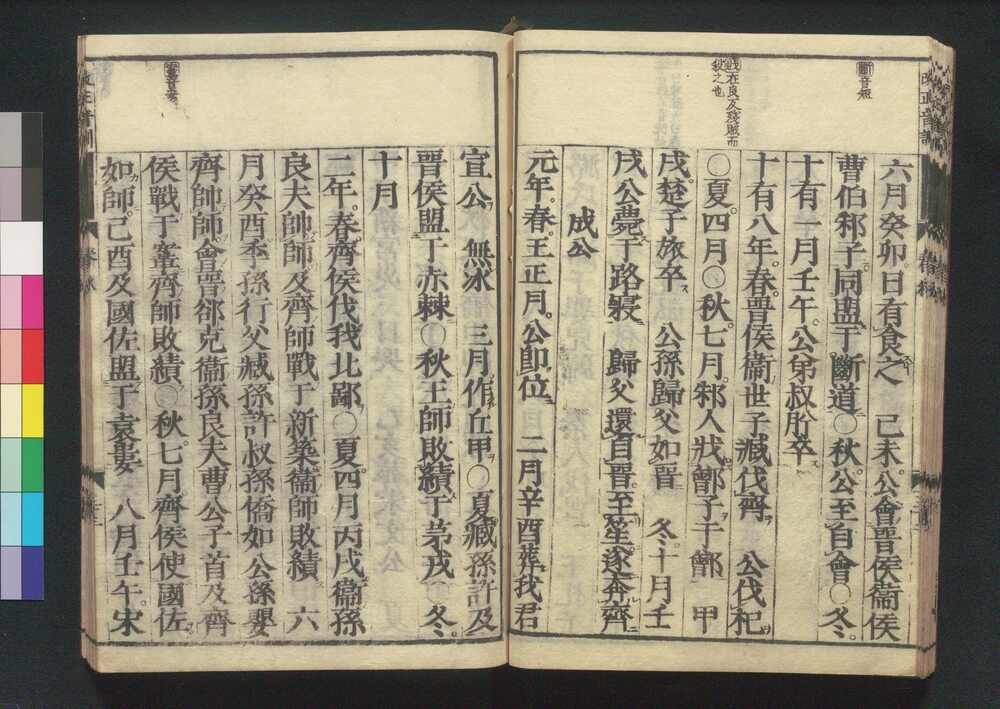 斷音短
戕在良反殘賊而
殺之也
六月癸卯日有食之　己未公會晉侯衞侯
曹伯邾子同盟于斷道〇秋公至自會〇冬
十有一月壬午公弟叔肸卒
十有八年春晉侯衞世子臧伐齊　公伐杞
〇夏四月〇秋七月邾人戕鄫子于鄫　甲
戌楚子旅卒　公孫歸父如晉　冬十月壬
戌公薨于路寢　歸父還自晉至笙遂奔齊
成公
元年春王正月公卽位　二月辛酉葬我君
宣公　無冰　三月作丘甲〇夏臧孫許及
晉侯盟于赤棘〇秋王師敗績于茅戎〇冬
十月
二年春齊侯伐我北鄙〇夏四月丙戌衞孫
良夫帥師及齊師戰于新築衞師敗績　六
月癸酉季孫行父臧孫許叔孫僑如公孫嬰
齊帥師會晉郤克衞孫良夫曹公子首及齊
侯戰于鞌齊師敗績〇秋七月齊侯使國佐
如師己酉及國佐盟于袁婁　八月壬午宋
改正音訓
春秋